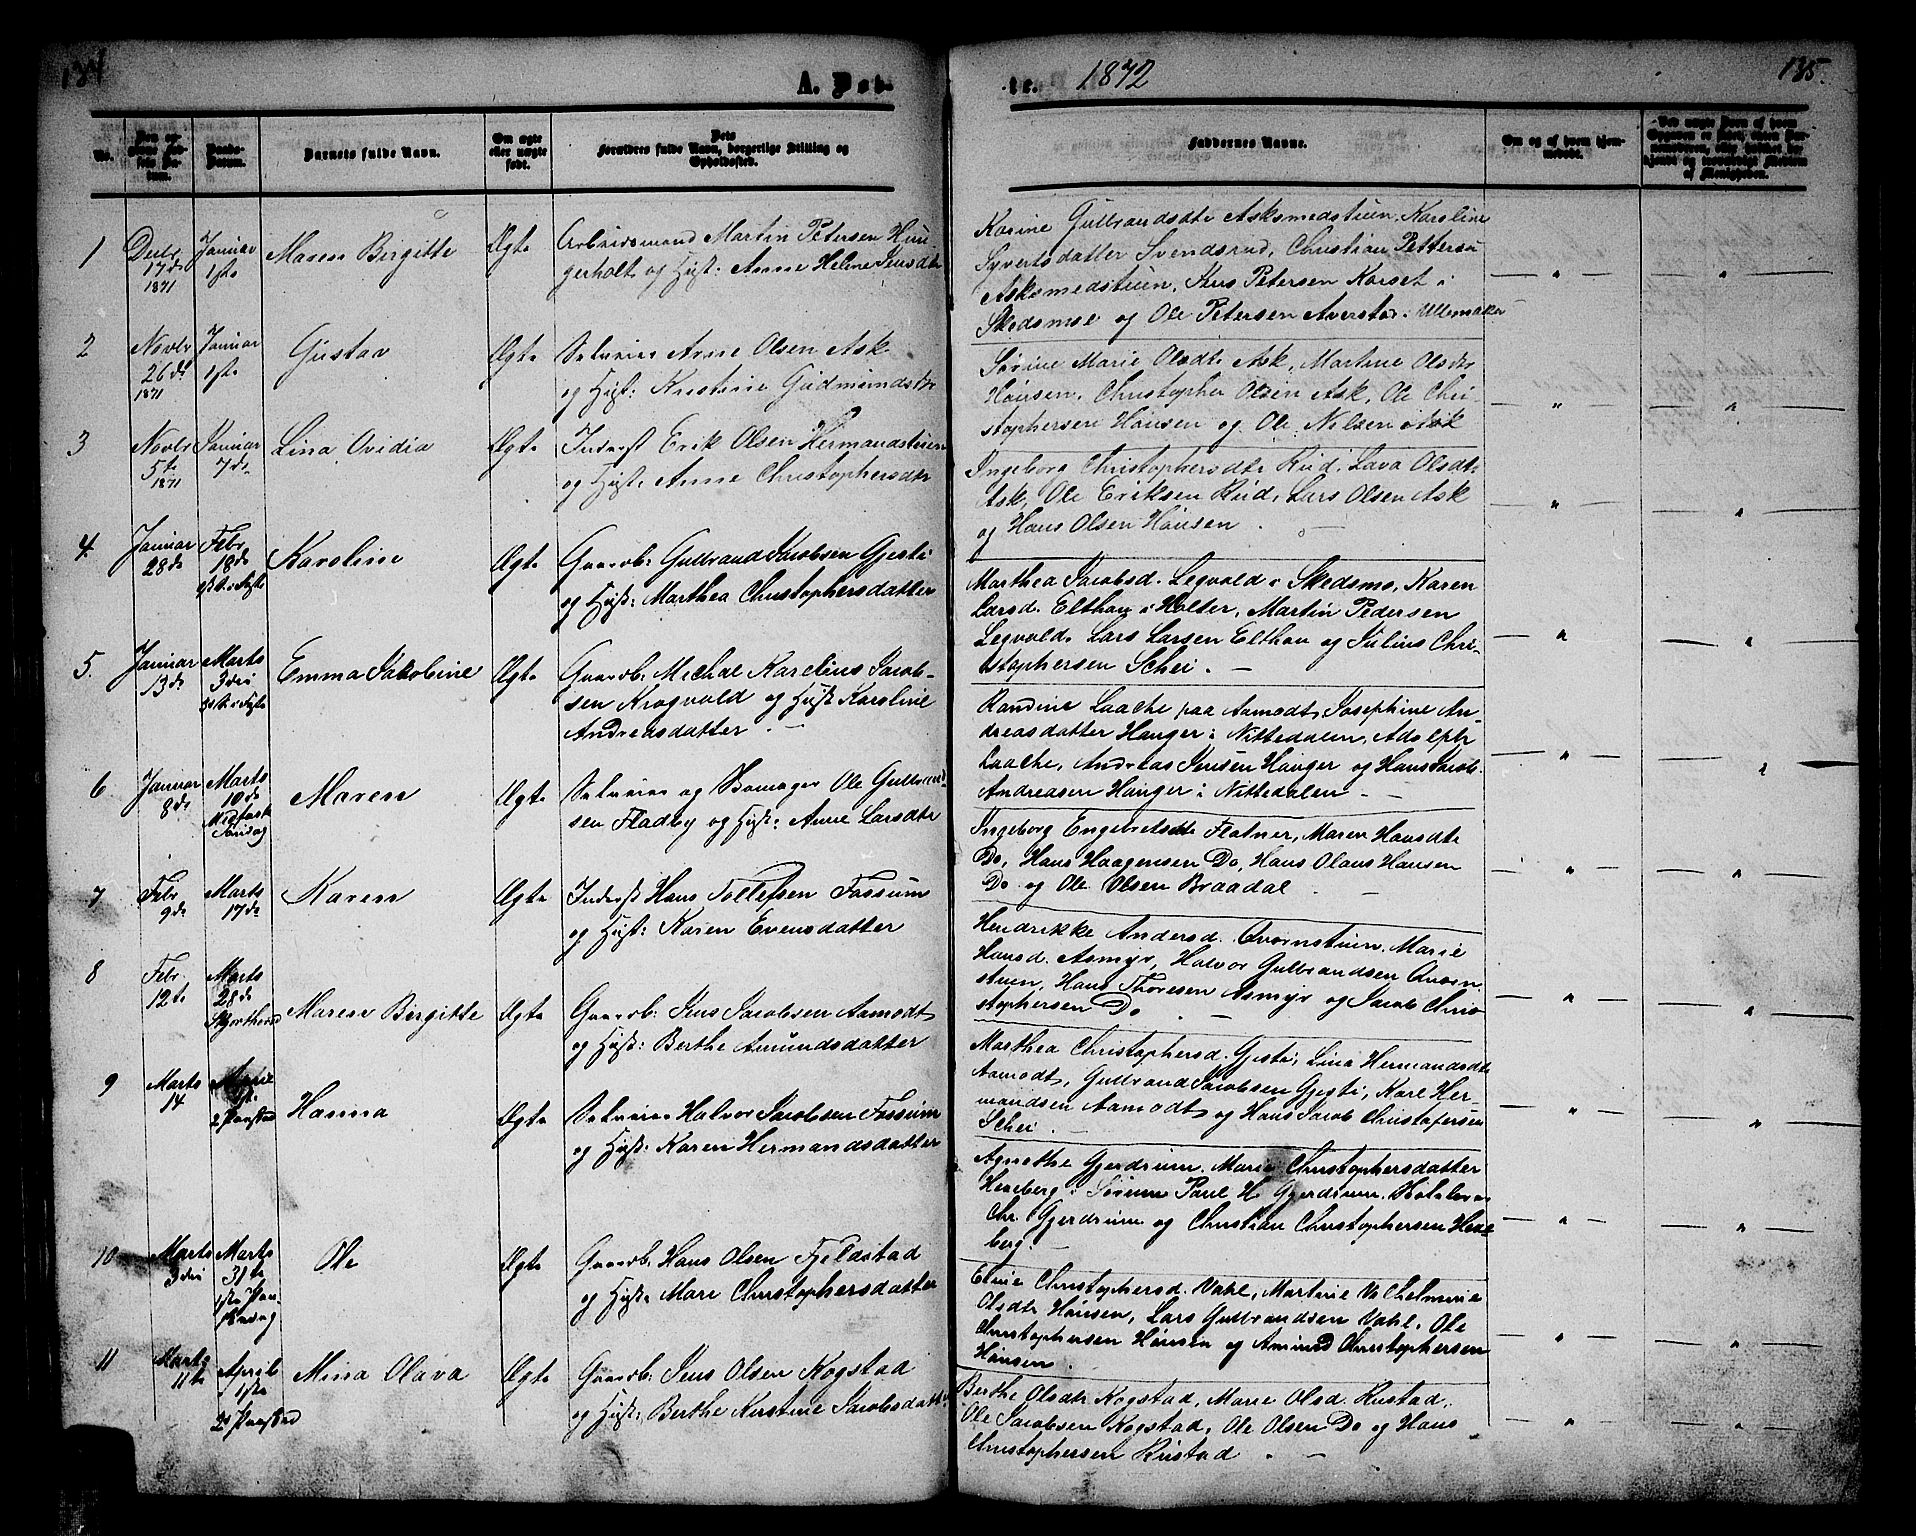 134
A. Fød-
te. 1872
135.
No.
Barnets fulde Navn.
Om ægte eller uægte født.
Forældres fulde Navn, borgerlige Stilling og Opholdssted.
Faddernes Navne.
1
Decbr 17de 1871
Januar 1ste
Maren Birgitte
Ægte
Arbeidsmand Martin Petersen Hau-
gerholt og Hust: Anne Helene Jensdtr
Karine Gulbrandsdtr Asksmedstuen, Karoline
Syvertsdatter Svendsrud, Christian Pettersen
Asksmedstuen, Jens Petersen Korset i
Skedsmo og Ole Petersen Averstad i Ullensaker
2
Novbr 26de 1871
Januar 1ste
Gustav
Ægte
Selveier Arne Olsen Ask
og Hust: Kristine Gudmundsdtr
Sørine Marie Olsdtr Ask, Martine Olsdtr
Hønsen, Christopher Olsen Ask, Ole Chri-
stophersen Hønsen og Ole Nilsen Ask
3
Novbr 5te 1871
Januar 7de
Lina Ovidia
Ægte
Inderst Erik Olsen Hermandstuen
og Hust. Anne Christophersdtr
Ingeborg Christophersdtr Rud, Lava Olsdtr
Ask, Ole Eriksen Rud, Lars Olsen Ask
og Hans Olsen Hønsen.
4.
Januar 28de
Febr 18de
Karoline
Ægte
Gaardb: Gulbrand Jacobsen Gjesti
og Hust: Marthea Christophersdatter
Marthea Jacobsd. Legvold i Skedsmo, Karen
Larsd. Elthon i Holter, Martin Pedersen
Legvold, Lars Larsen Elthon og Julius Chri-
stophersen Schei.
5.
Januar 13de
Marts 3die
Emma Jakobine
Ægte
Gaardb: Michal Karelius Jacob-
sen Krogvold og Hust Karoline
Andreasdatter.
Randine Laache paa Aamodt, Josephine An-
dreasdatter Hauger i Nittedalen, Adolph
Laache, Andreas Jensen Hauger og Hans Jacob
Andreasen Hauger i Nittedalen
6
Januar 8de
Marts 10de Midfaste Søndag
Maren
Ægte
Selveier og Skomager Ole Gulbrand-
sen Fladby og Hust: Anne Larsdtr
Ingeborg Engebretsdtr Flatner, Maren Hansdtr
Do, Hans Haagensen Do, Hans Olaus Hansen
Do og Ole Olsen Braadal
7
Febr 9de
Marts 17de
Karen
Ægte
Inderst Hans Tollefsen Fossum
og Hust: Karen Evensdatter
Hendrikke Andersd. Qvernstuen, Marie
Hansd. Asmyr, Halvor Gulbrandsen Qvern-
stuen, Hans Thoresen Asmyr og Jacob Chri-
stophersen Do
8
Febr. 12te
Marts 28de Skjærthorsd
Maren Birgitte
Ægte
Gaardb: Jens Jacobsen Aamodt
og Hust: Berthe Amundsdatter
Marthea Christophersd. Gjesti, Lina Hermandsdtr
Aamodt, Gulbrand Jacobsen Gjesti, Karl Her-
mandsen Aamodt og Hans Jacob Christofersen
Schei.
9
Marts 14
2 Paaskd
Hanna
Ægte
Selveier Halvor Jacobsen Fossum
og Hust: Karen Hermandsdatter
Agnethe Gjerdrum, Marie Christophersdatter
Hexeberg i Sørum Paul H Gjerdrum,
Chr. Gjerdrum og Christian Christophersen Hexe-
berg.
10
Marts 3die
Marts 31te 1ste Paaskedag
Ole
Ægte
Gaardb: Hans Olsen Fjeldstad
og Hust: Mari Christophersdatter
Eline Christophersd. Vahl, Martine Vilhelmine
Olsdtr Hønsen, Lars Gulbrandsen Vahl, Ole
Christophersen Hønsen og Amund Christophersen
Hønsen.
11
Marts 11te
April 1ste 2d Paaskd
Mina Olava
Ægte
Gaardb: Jens Olsen Kogstad
og Hust: Berthe Kirstine Jacobsdatter
Berthe Olsdtr Kogstad, Marie Olsd. Rustad,
Ole Jacobsen Kogstad, Ole Olsen Do og Hans
Christophersen Rustad